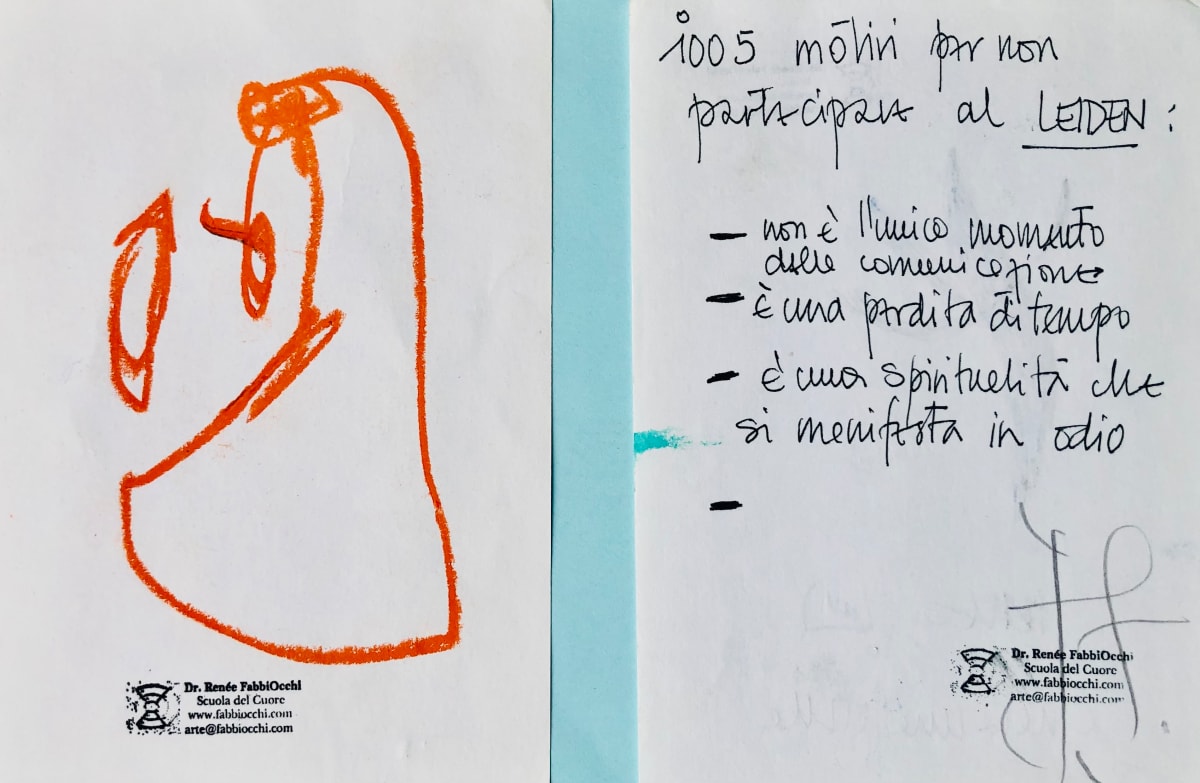 Dr. Renée FabbiOcchi
Scuola del Cuore
www.fabbiocchi.com
arte@fabbiocchi.com
1005 motivi per non
partecipare al LEIDEN :
– non è l'unico momento
della comunicazione
– è una perdita di tempo
– è una spiritualità che
si manifesta in odio
–
Dr. Renée FabbiOcchi
Scuola del Cuore
www.fabbiocchi.com
arte@fabbiocchi.com